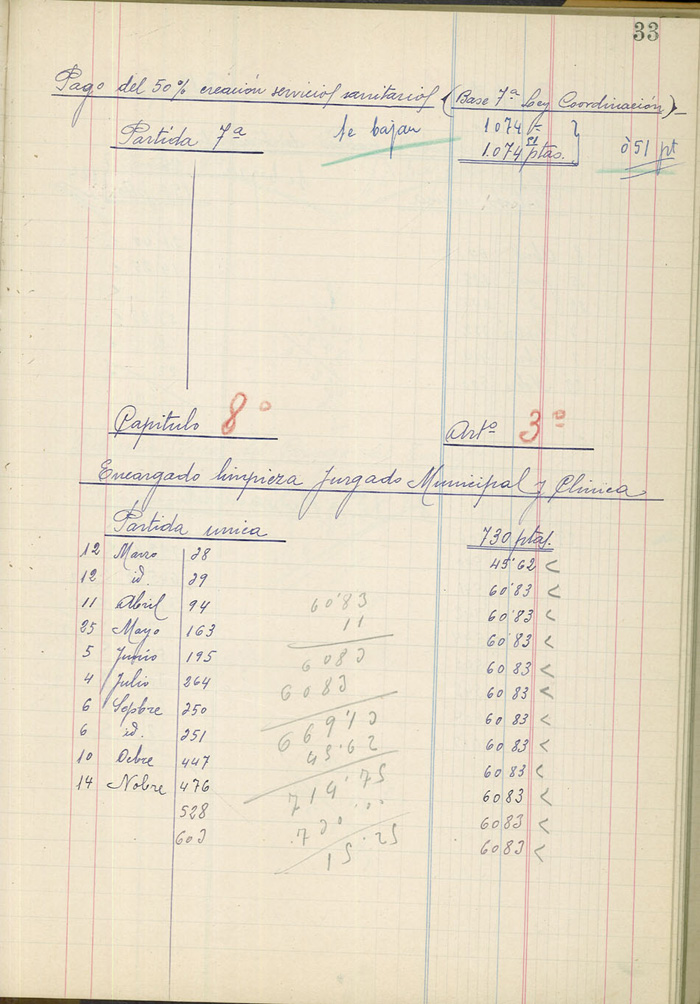 33
Pago del 50% creación servicios sanitarios (Base 7ª Ley Coordinación)
Partida 7ª se bajan 1074'=
1.074'51 ptas. 0'51 pt
Capitulo 8º Artº 3º
Encargado limpieza Juzgado Municipal y Clinica
Partida unica 730 ptas.
12 Marzo 28 45'62
12 id. 29 60'83
11 Abril 94 60'83 60'83
25 Mayo 163 11 60'83
5 Junio 195 6083 60'83
4 Julio 264 6083 60'83
6 Sepbre 250 669'13 60'83
6 id. 251 45'62 60'83
10 Ocbre 447 60'83
14 Nobre 476 714'75 60'83
528 730'.. 60'83
603 15'25 60'83